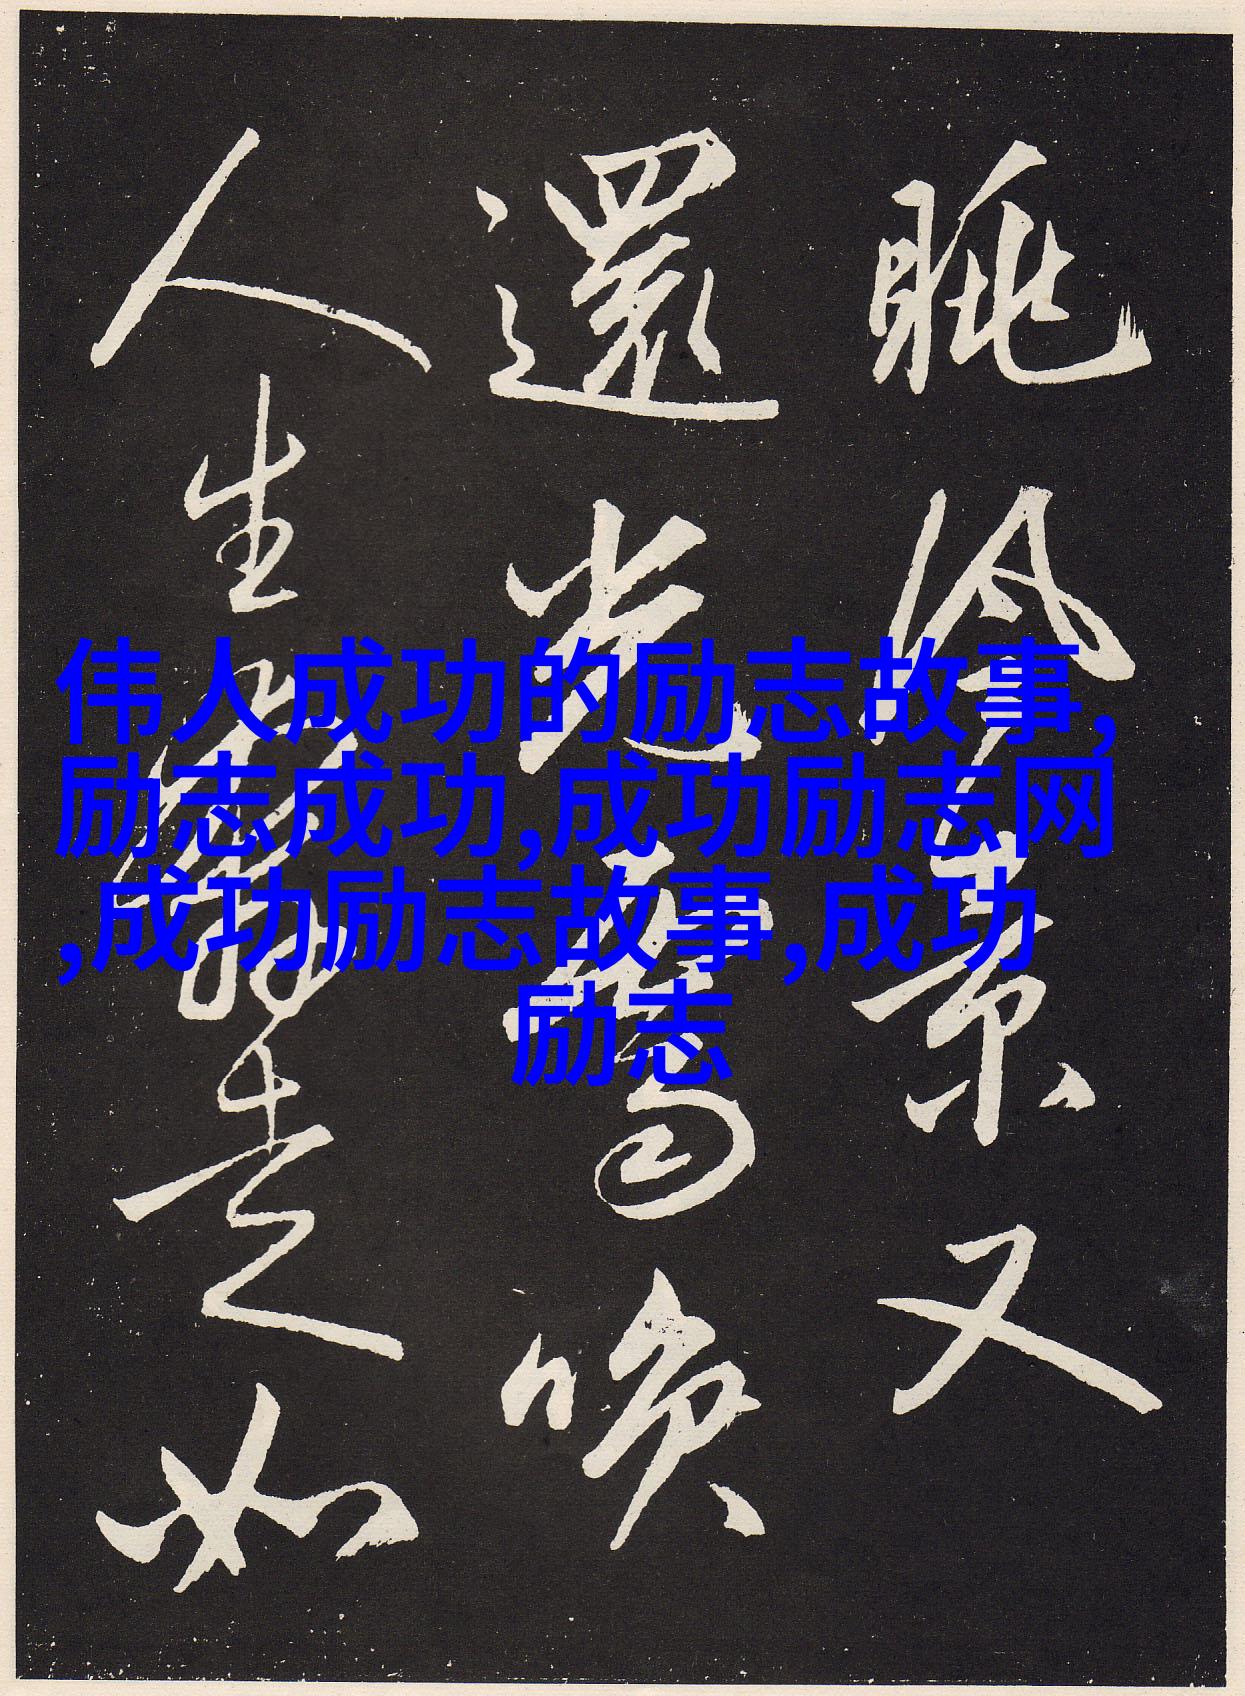 眺 景又
還光
人生 如
伟人成功的励志故事,
励志成功,成功励志网
,成功励志故事,成功
励志